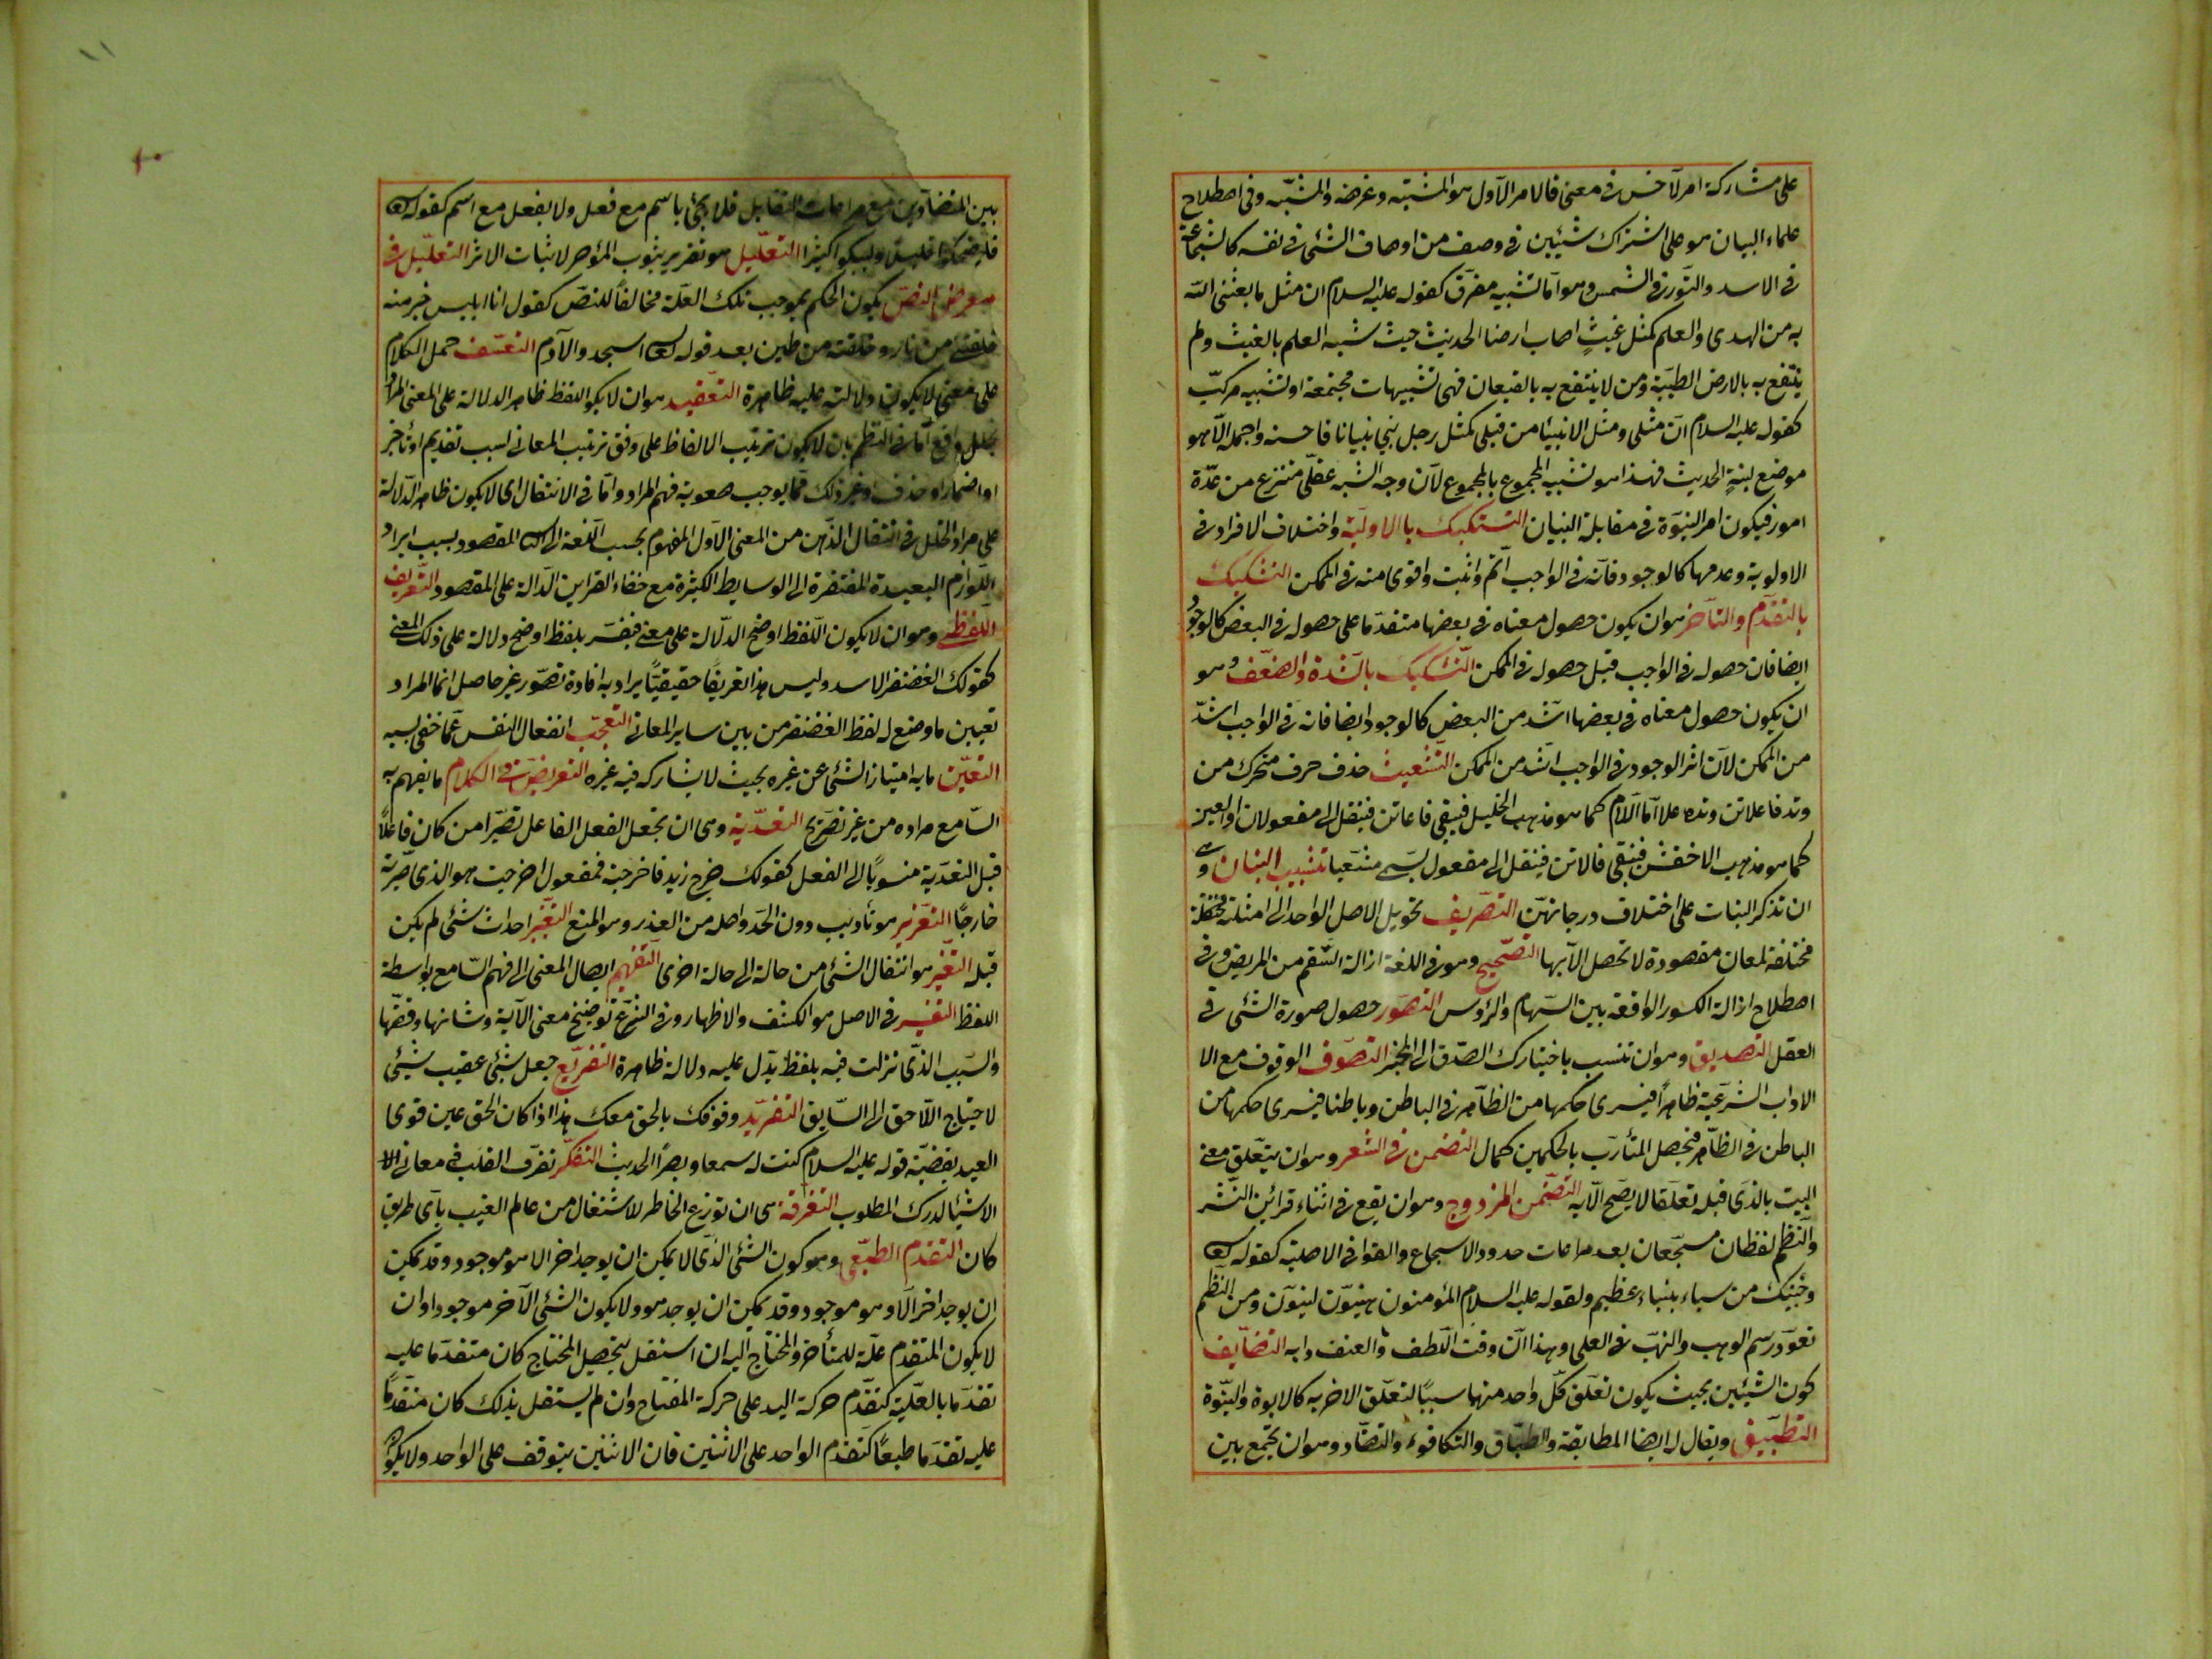 على مشاركة امر لآخر فى معنى فالامر الاول هو المشبه وغرضه والمشبّه وفى اصطلاح
علماء البيان هو على اشتراك شيئين فى وصف من اوصاف الشئ فى نفسه كالشجاعة
فى الاسد والنّور فى الشمس وهو امّا تشبيه مفرّق كقوله عليه السلام ان مثل ما بعثنى الله
به من الهدى والعلم كمثل غيثٍ اصاب ارضا الحديث حيث شبه العلم بالغيث ولم
ينتفع به بالارض الطيّبة ومن لا ينتفع به بالقيعان فهى تشبيهات مجتمعة او تشبيه مركّب
كقوله عليه السلام انّ مثلى ومثل الانبياء من قبلى كمثل رجل بنى بنيانا فاحسنه واجمله الّا هو
موضع لبنةٍ الحديث فهذا هو تشبيه المجموع بالمجموع لانّ وجه الشبه عقلّى منتزع من عدّة
امور فيكون امر النبوّة فى مقابلة البنيان التشكيك بالاولّية واختلاف الافراد فى
الاولوية وعدمها كالوجود فانّه فى الواجب اتمّ واثبت واقوى منه فى الممكن التشكيك
بالتقدّم والتأخر هو ان يكون حصول معناه فى بعضها متقدّما على حصوله فى البعض كالوجود
ايضا فان حصوله فى الواجب قبل حصوله فى الممكن التّشكيك بالشّدة والضعّف وهو
ان يكون حصول معناه فى بعضها اشّد من البعض كالوجود ايضا فانه فى الواجب اشدّ
من الممكن لانّ اثر الوجود فى الواجب اشّد من الممكن التشعيث حذف حرف متحرّك من
وتد فاعلاتن وتده علا امّا اللام كما هو مذهب الخليل فيبقى فاعاتن فينقل الى مفعولان او العين
كما هو مذهب الاخفش فيبقى فالاتن فينقل الى مفعول يسّمى مشعّبا تشبيب البنات وهى
ان تذكر البنات على اختلاف درجاتهنّ التصّريف تحويل الاصل الواحد الى امثلة مختلفة
مختلفة لمعان مقصودة لا تحصل الّا بها التصّحيح وهو فى اللغة ازالة السّقم من المريض وفى
اصطلاح ازالة الكسور الواقعة بين السّهام والرؤس التصوّر حصول صورة الشئ فى
العقل التصديق وهو ان تنسب باختيارك الصّدق الى المخبر التصوّف الوقوف مع الا
الاداب الشرعيّة ظاهرًا فيسرى حكمها من الظاّهر فى الباطن وباطنا فيسرى حكمها من
الباطن فى الظاّهر فيحصل المتأرّب بالحكمين كمال التضمن فى الشعر وهو ان يتعّلق معنى
البيت بالذّى قبله تعلّقا لا يصّح الّا به التضّمن المزدوج وهو ان يقع فى اثناء قرائن النّثر
والنّظم لفظان مسجّعان بعد مراعات حدود الاسجاع والقوافى الاصلية كقوله تعالى
وجئتك من سباء بنباء عظيم ولقوله عليه السلام المؤمنون هينّون لينّون ومن النّظم
تعوّد رسم الوهب والنهّب فى العلى وهذا انّ وقت اللّطف والعنف دابه التضّايف
كون الشيئين بحيث يكون تعلّق كلّ واحد منهما سببًا لتعلّق الاخر به كالابوة والبنّوة
التطبّيق ويقال له ايضا المطابقة والطبّاق والتكافوء والتضّاد وهو ان تجمع بين
بين المتضادّين مع مراعات التقابل فلا يجئ باسم مع فعل ولا بفعل مع اسم كقوله تعالى
فليضحكوا قليلا وليبكوا كثيرا التعّليل هو تقرير ثبوت المؤثر لاثبات الاثر التعلّيل فى
معرض النصّ يكون الحكم بموجب تلك العلّة مخالفًا للنصّ كقول انا ابليس خير منه
خلقتنى من نار وخلقته من طين بعد قوله تعالى اسجدوا لآدم التعسّف حمل الكلام
على معنى لا يكون دلالته عليه ظاهرة التعّقيد هو ان لا يكون اللفظ ظاهر الدلالة على المعنى المراد
لخلل واقع امّا فى النظم بان لا يكون ترتيب الالفاظ على وفق ترتيب المعانى بسبب تقديم او تأخير
او اضمار او حذف او غير ذلك ممّا يوجب صعوبة فهم المراد وامّا فى الانتقال اى لا يكون ظاهر الدّلالة
على مراد الخلل فى انتقال الذّهن من المعنى الاوّل المفهوم بحسب اللّغة الى المقصود بسبب ايراد
اللّوازم البعيدة المفتقرة الى الوسايط الكثيرة مع خفاء القراين الدّالة على المقصود التّعريف
اللّفظى وهو ان لا يكون اللّفظ اوضح الدّلالة على معنى فيفسّر بلفظ اوضح دلالة على ذلك المعنى
كقولك الغضنفر الاسد وليس هذا تعريفًا حقيقيًّا يراد به افادة تصوّر غير حاصل انما المراد
تعيين ما وضع له لفظ الغضنفر من بين ساير المعانى التعجّب انفعال النفس عّما خفى سببه
التعّين ما به امتياز الشئ عن غيره بحيث لا يشاركه فيه غيره التعريض فى الكلام ما يفهم به
السّامع مراده من غير تصّريح التعّدية وهى ان تجعل الفعل الفاعل تصّير من كان فاعلًا
قبل التعّدية منسوبًا الى الفعل كقولك خرج زيد فاخرجته فمفعول اخرجت هو الذى صّيرته
خارجًا التعّزير هو تأديب دون الحّد واصله من العذر وهو المنع التغّير احداث شئ لم يكن
قبله التغّير هو انتقال الشئ من حالة الى حالة اخرى التفّهيم ايصال المعنى الى فهم السّامع بواسطة
اللفظ التفسير فى الاصل هو الكشف والاظهار وفى الشرع توضيخ معنى الآية وشانها وقصّتها
والسّبب الذّى نزلت فيه بلفظ يدّل عليه دلالة ظاهرة التفرّيع جعل شئ عقيب شئ
لاحتياج اللّاحق الى السّابق التفرّيد وقوفك بالحق معك هذا اذا كان الحق عين قوى
العبد بقضيّة قوله عليه السلام كنت له سمعا وبصرًا الحديث التفكّر تصّرف القلب فى معانى الا
الاشياء لدرك المطلوب التفرقة هى ان توزع الخاطر للاشتغال من عالم الغيب بأى طريق
كان التقدم الطبّعى وهو كون الشئ الذّى لا يمكن ان يوجد اخر الا هو موجود وقد يمكن
ان يوجد اخر الّا وهو موجود وقد يمكن ان يوجد هو ولا يكون الشئ الآخر موجودا وان
لا يكون المتقدم علّة للمتأخر والمحتاج اليه ان استقل بتحصيل المحتاج كان متقدمًا عليه
تقدّما بالعلّية كتقدّم حركة اليد على حركة المفتاح وان لم يستقل بذلك كان متقدمًا
عليه تقدّما طبعًا كتقدّم الواحد على الاثنين فان الاثنين يتوقف على الواحد ولا يكون